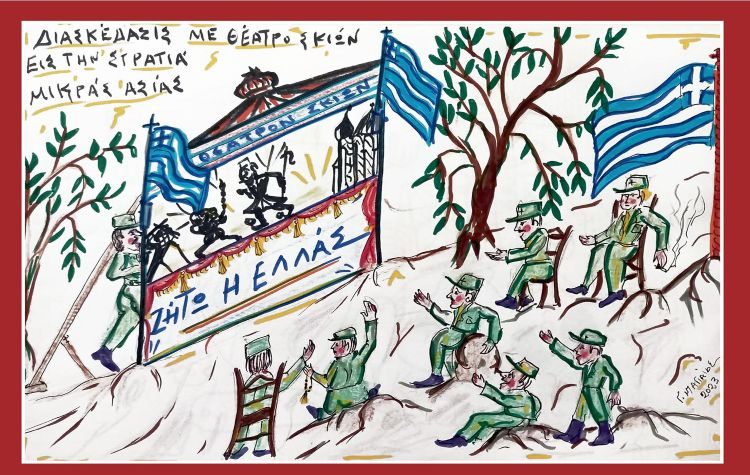 ΔΙΑΣΚΈΔΑΣΙΣ ΜΕ ΘΈΑΤΡΟ ΣΚΙΏΝ
ΕΙΣ ΤΗΝ ΣΤΡΑΤΙΆ
ΜΙΚΡΆΣ ΑΣΊΑΣ
ΘΕΑΤΡΟΝ ΣΚΙΩΝ
ΖΉΤΩ Η ΕΛΛΆΣ
2023